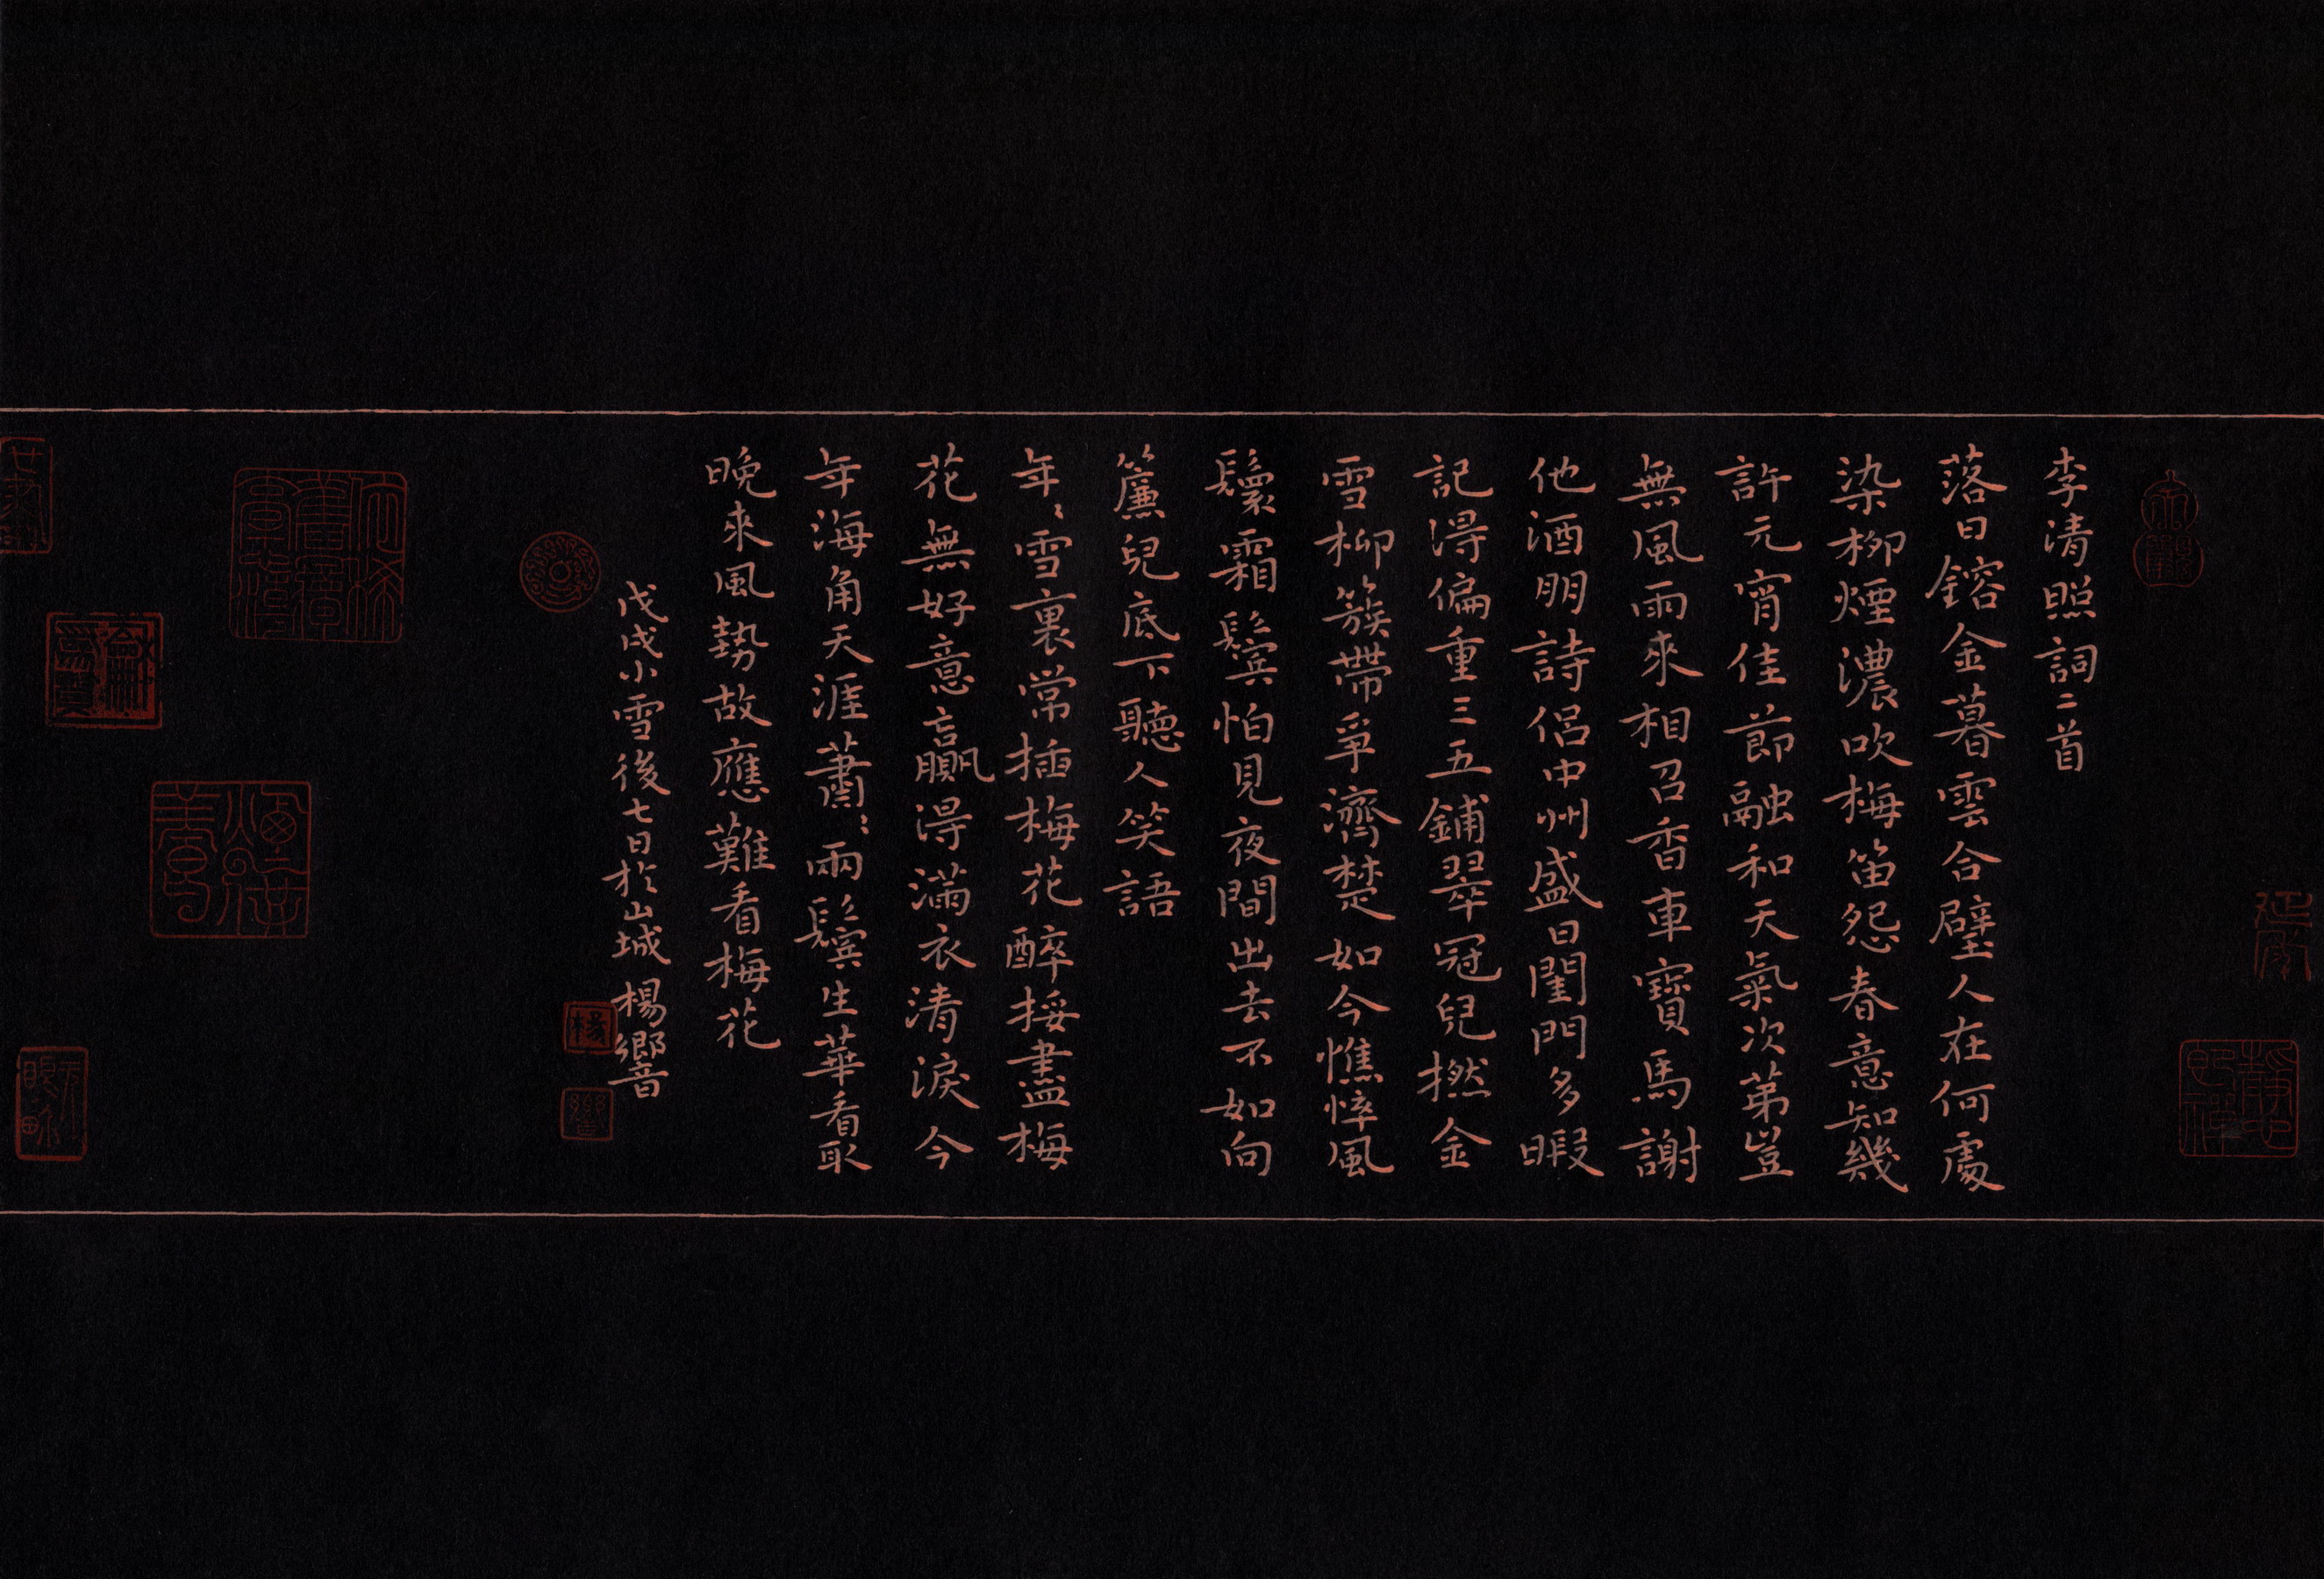 李清照詞二首
落日鎔金暮雲合璧人在何處
染柳煙濃吹梅笛怨春意知幾
許元宵佳節融和天氣次第豈
無風雨來相召香車寶馬謝
他酒朋詩侶中州盛日閨門多暇
記得偏重三五鋪翠冠兒撚金
雪柳簇帶爭濟楚如今憔悴風
鬟霜鬢怕見夜間出去不如向
簾兒底下聽人笑語
年〻雪裏常插梅花醉挼盡梅
花無好意贏得滿衣清淚今
年海角天涯蕭〻兩鬢生華看取
晚來風勢故應難看梅花
戊戌小雪後七日於山城楊鄉音
楊